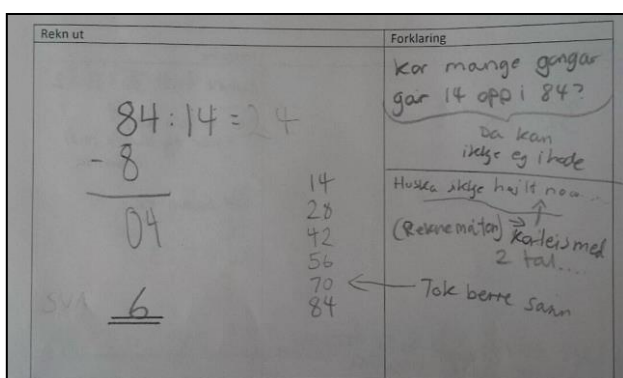 Rekn ut
84:14=24
- 8
04
SVA 6
14
28
42
56
70
84
Forklaring
Kor mange gongar
går 14 opp i 84?
Da kan
ikkje eg i hode
Huska ikkje heilt noa...
(Reknemåten) → Korleis med
2 tal....
Tok berre sånn